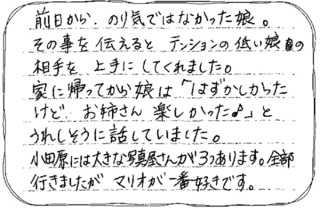 前日から、のり気ではなかった娘。
その事を伝えると テンションの低い娘の
相手を 上手にしてくれました。
家に帰ってから娘は「はずかしかった
けど お姉さん 楽しかった♪」と
うれしそうに話していました。
小田原には大きな写真屋さんが3つあります。全部
行きましたが マリオが一番好きです。